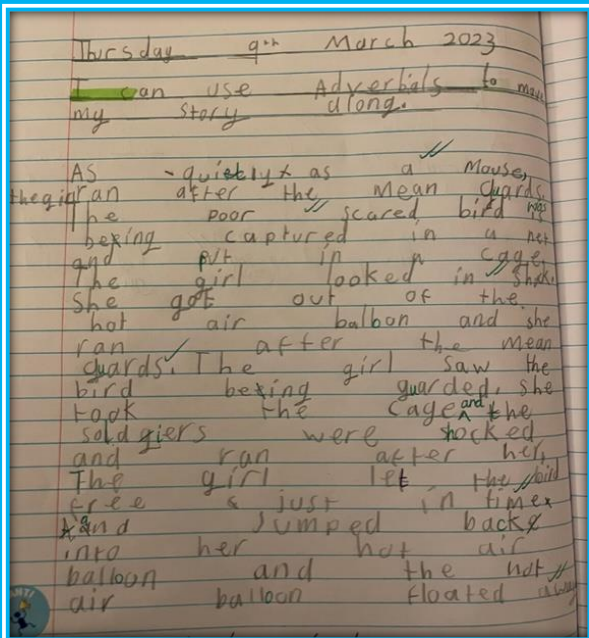 Thursday 9th March 2023
I can use Adverbials to move
my story along.
As quietly as a Mouse,
the girl ran after the mean guards.
The poor scared bird was
being captured in a net
and put in a cage.
The girl looked in Shok.
She got out of the
hot air balloon and she
ran after the mean
guards. The girl saw the
bird being guarded. she
took the cage and the
soldgiers were shocked
and ran after her,
The girl let the bird
free just in time
and Jumped back
into her hot air
balloon and the hot
air balloon floated away